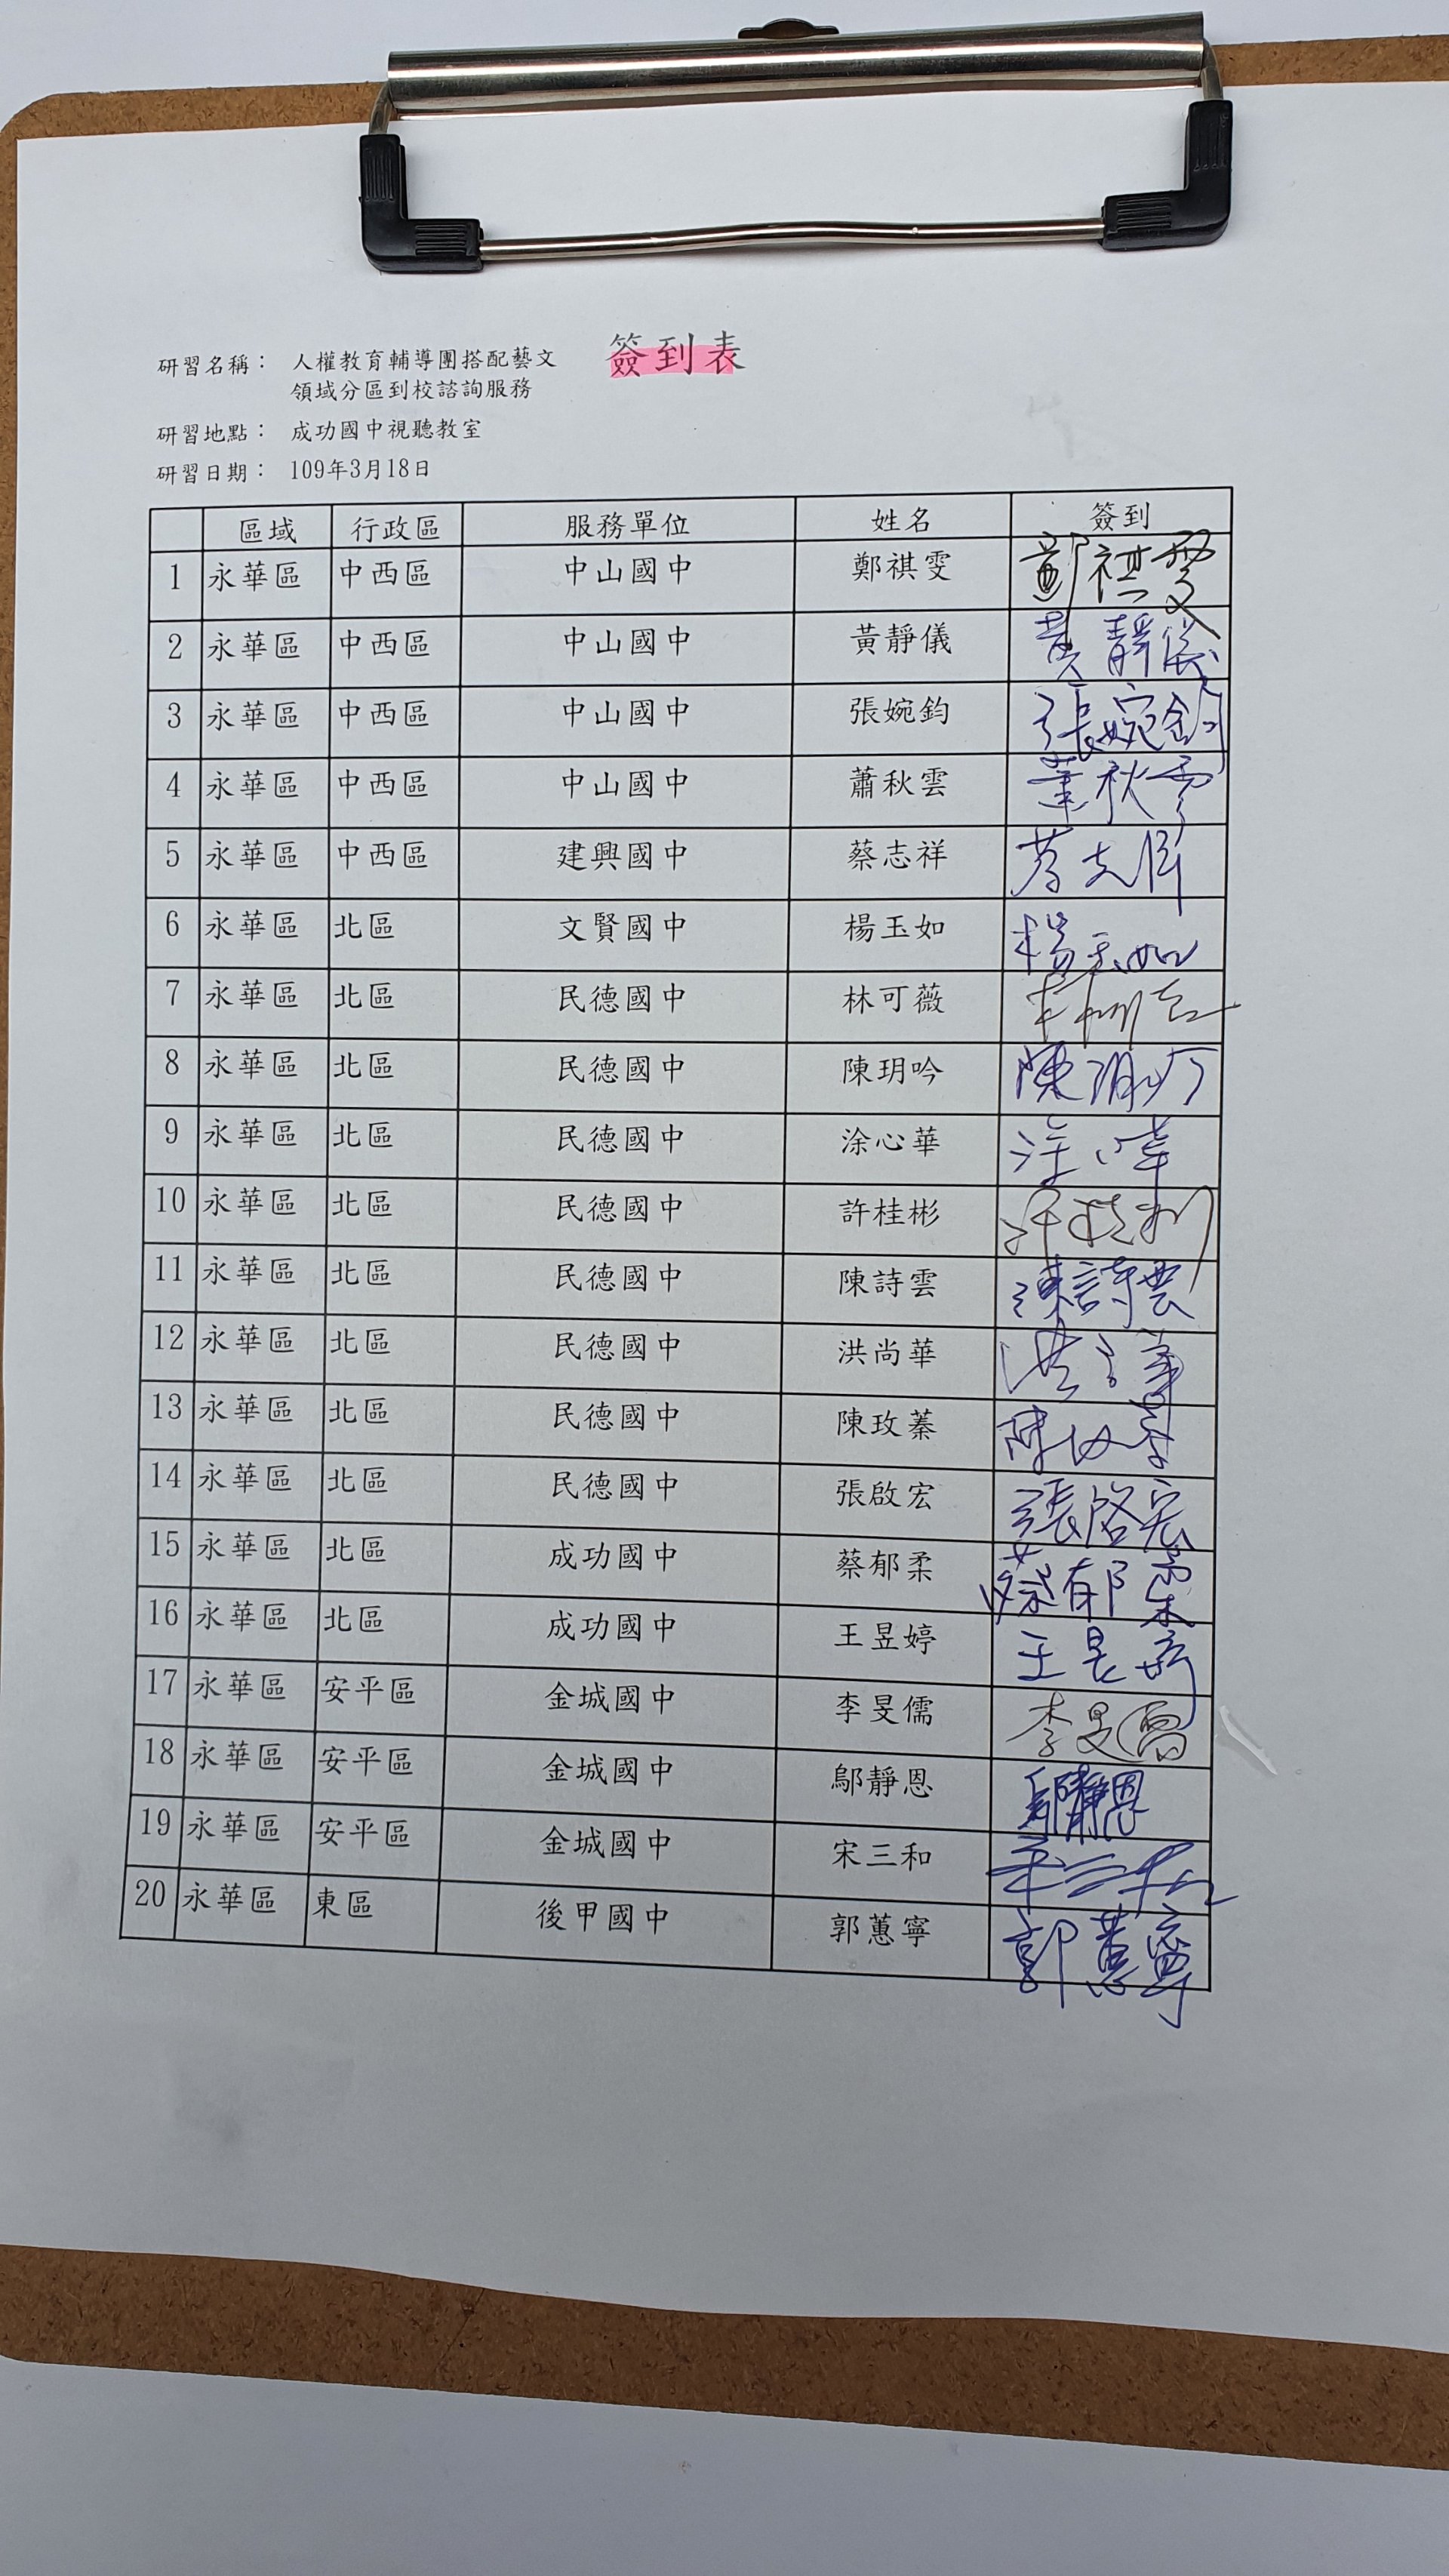 簽到表
研習名稱： 人權教育輔導團搭配藝文
領域分區到校諮詢服務
研習地點： 成功國中視聽教室
研習日期： 109年3月18日
區域 行政區 服務單位 姓名 簽到
1 永華區 中西區 中山國中 鄭祺雯 鄭祺雯
2 永華區 中西區 中山國中 黃靜儀 黃靜儀
3 永華區 中西區 中山國中 張婉鈞 張婉鈞
4 永華區 中西區 中山國中 蕭秋雲 蕭秋雲
5 永華區 中西區 建興國中 蔡志祥
6 永華區 北區 文賢國中 楊玉如 楊玉如
7 永華區 北區 民德國中 林可薇
8 永華區 北區 民德國中 陳玥吟 陳玥吟
9 永華區 北區 民德國中 涂心華 涂心華
10 永華區 北區 民德國中 許桂彬 許桂彬
11 永華區 北區 民德國中 陳詩雲 陳詩雲
12 永華區 北區 民德國中 洪尚華 洪尚華
13 永華區 北區 民德國中 陳玫蓁 陳玫蓁
14 永華區 北區 民德國中 張啟宏 張啟宏
15 永華區 北區 成功國中 蔡郁柔 蔡郁柔
16 永華區 北區 成功國中 王昱婷 王昱婷
17 永華區 安平區 金城國中 李旻儒 李旻儒
18 永華區 安平區 金城國中 鄔靜恩 鄔靜恩
19 永華區 安平區 金城國中 宋三和 宋三和
20 永華區 東區 後甲國中 郭蕙寧 郭蕙寧